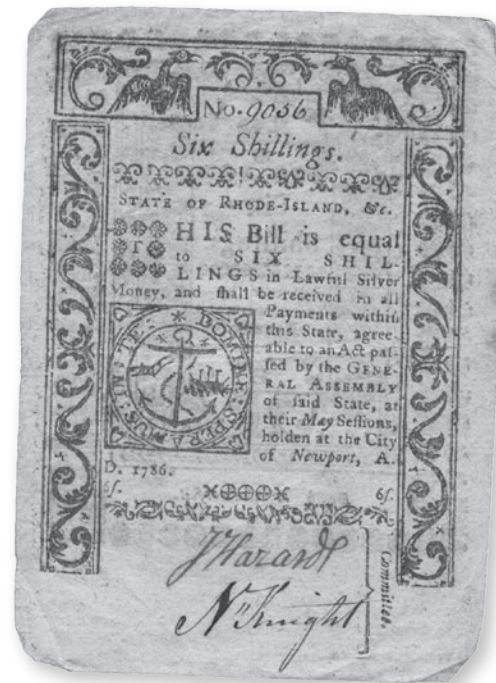 No. 9056
Six Shillings.
STATE OF RHODE-ISLAND, &c.
THIS Bill is equal
to SIX SHIL-
LINGS in Lawful Silver
Money, and shall be received in all
Payments within
this State, agree-
able to an Act pas-
sed by the GENE-
RAL ASSEMBLY
of said State, at
their May Sessions,
holden at the City
of Newport, A.
D. 1786.
IN TE DOMINE SPERAMUS
6s. 6s.
J Hazard
N Knight
Committee.